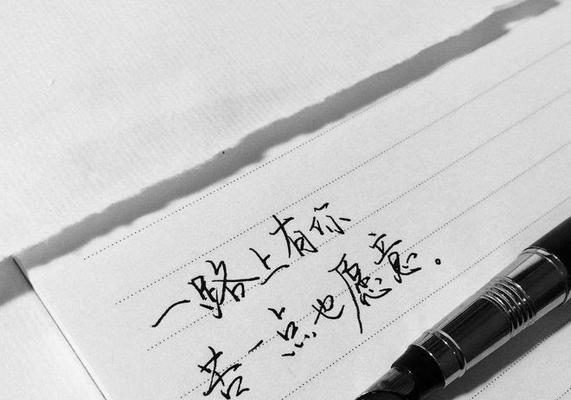 一路上有你
苦一点也愿意。